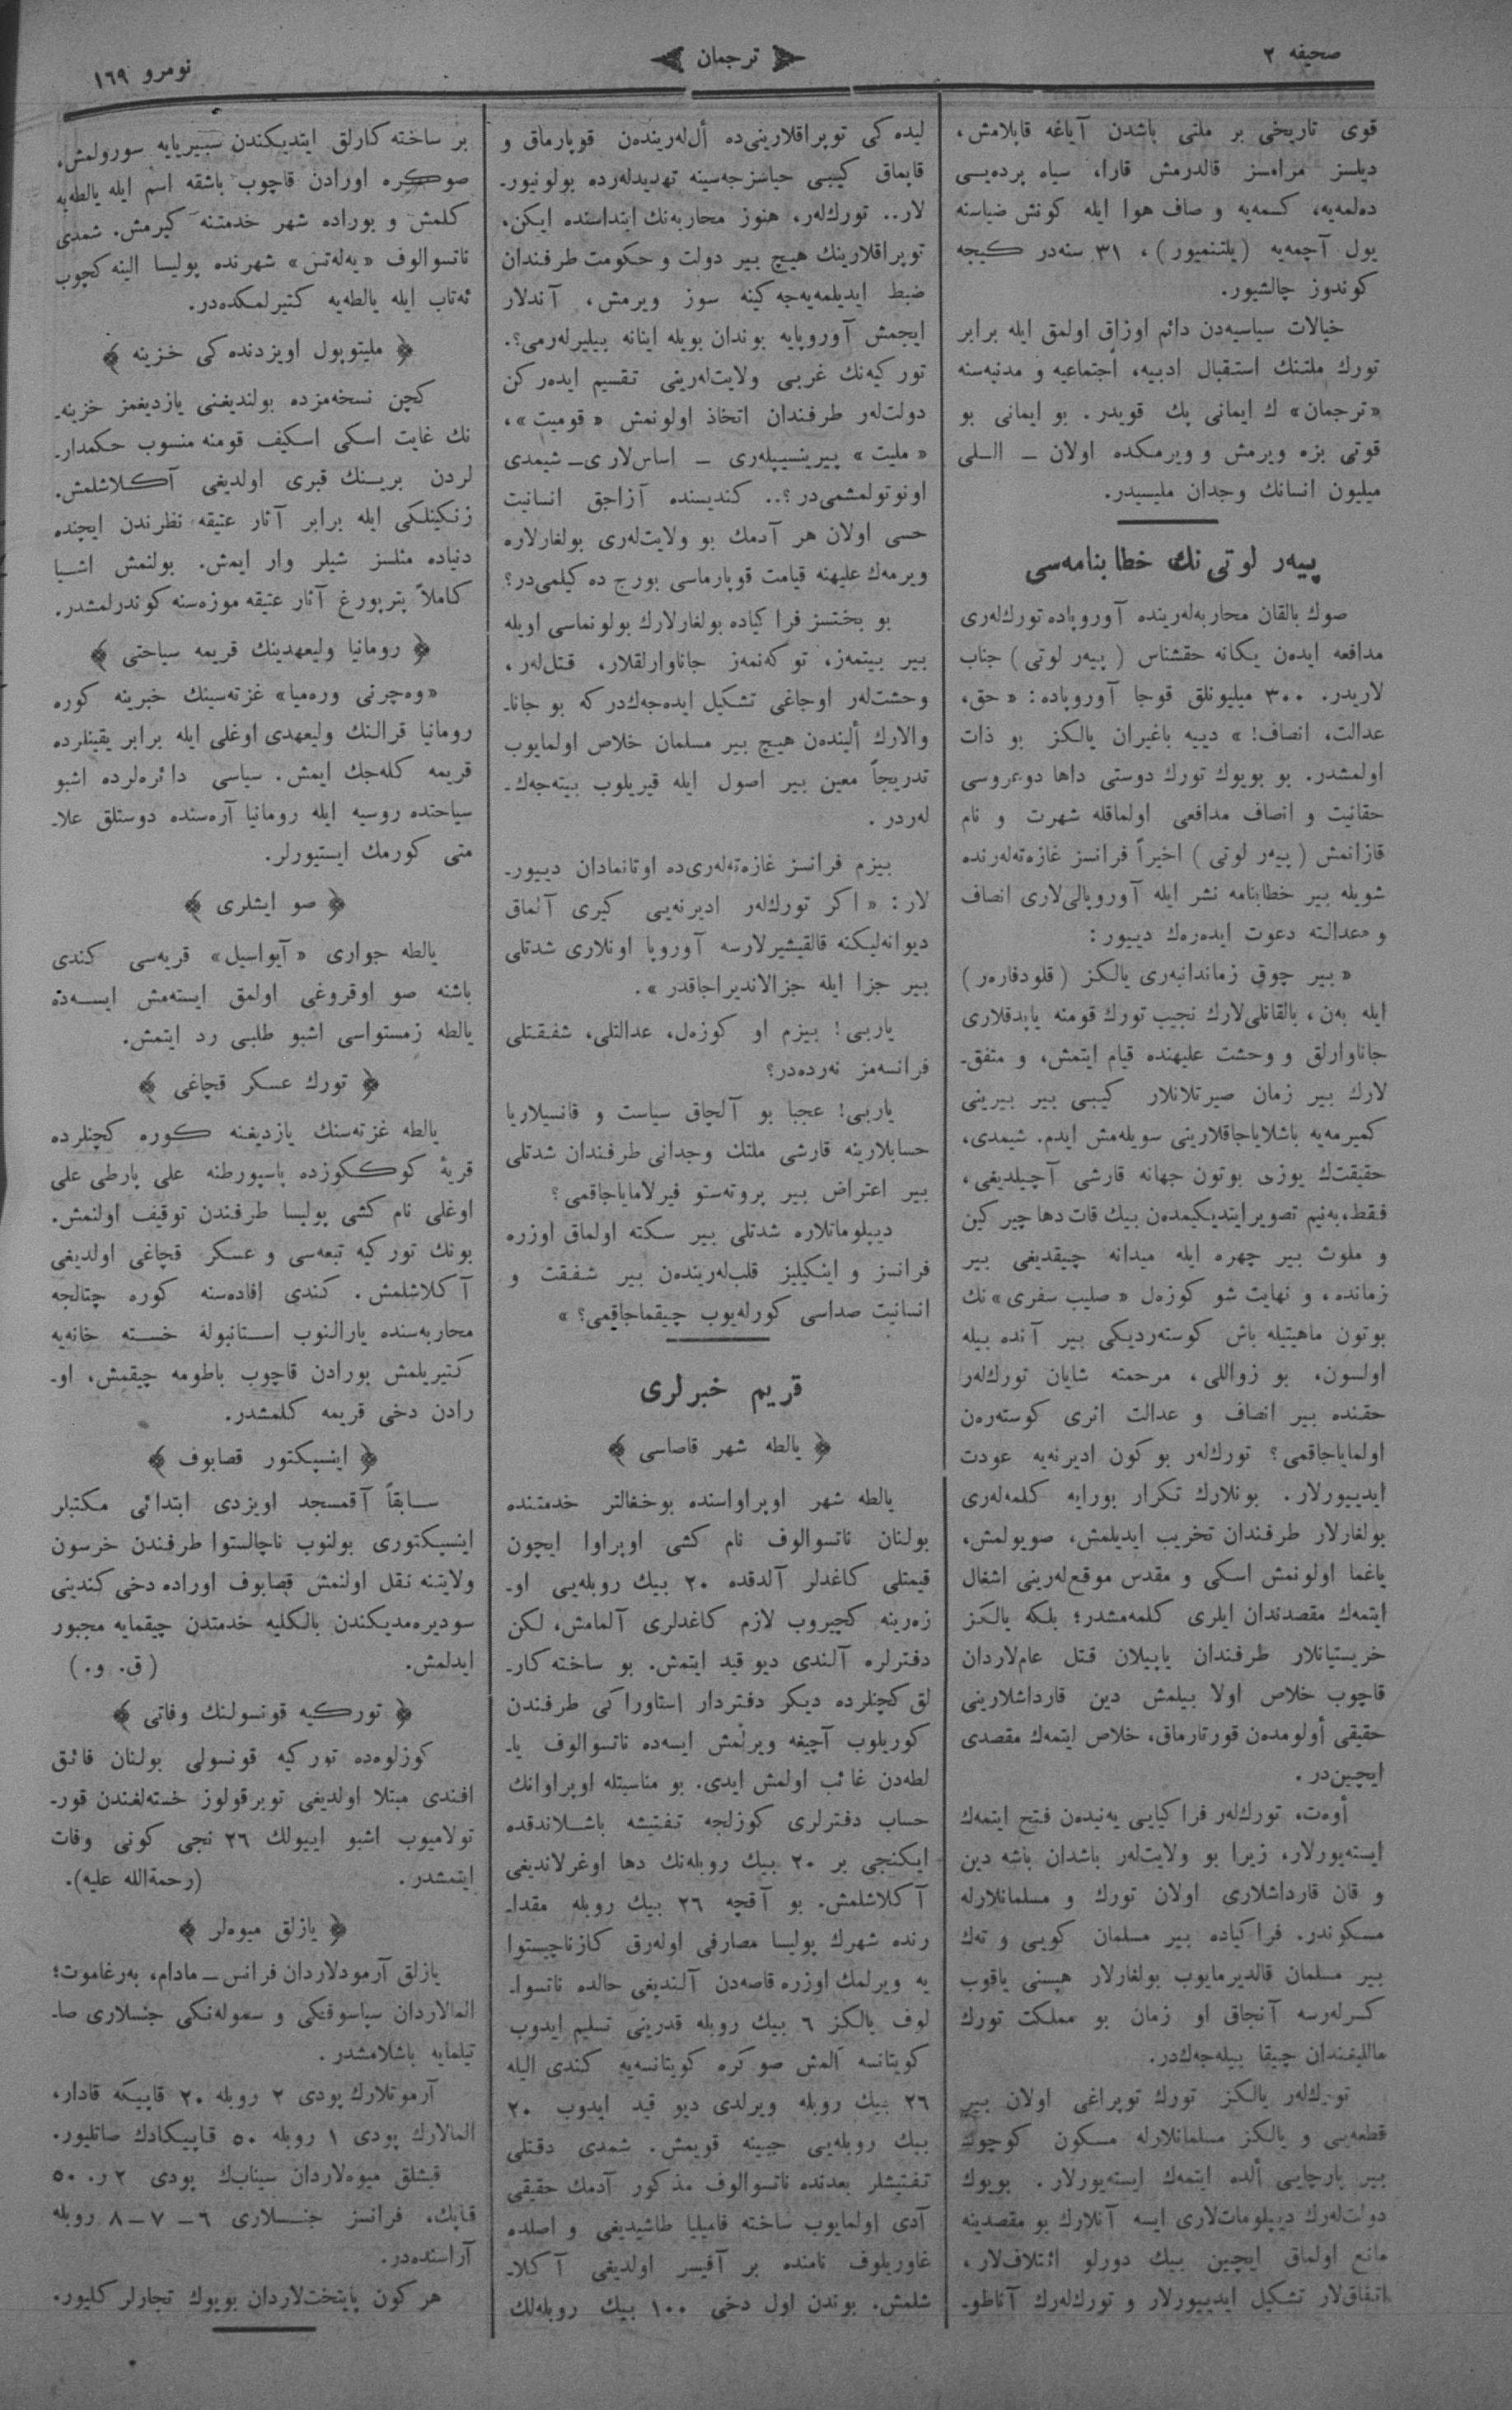 صحیفه ٢
ترجمان
نومرو ١٦٩
قوی تاریخی بر ملتی باشدن آیاغه قاپلامش،
دیلسز مزامسز قالدرمش قارا، سیاه پرده‌یی
ده‌لمه‌یه، کسمه‌یه و صاف هوا ایله کونش ضیاسنه
یول آچمه‌یه (یلتنمیور)، ٣١ سنه‌در کیجه
کوندوز چالشیور.
خیالات سیاسیه‌دن دائم اوزاق اولمق ایله برابر
تورك ملتنك استقبال ادبیه، اجتماعیه و مدنیه‌سنه
«ترجمان» ك ایمانی پك قویدر. بو ایمانی بو
قوتی بزه ویرمش و ویرمکده اولان – اللی
میلیون انسانك وجدان ملیسیدر.
پیه‌ر لوتی نك خطابنامه‌سی
صوك بالقان محاربه‌له‌رینده آوروپاده تورك‌له‌ری
مدافعه ایده‌ن یکانه حقشناس (پیه‌ر لوتی) جناب
لاریدر. ٣٠٠ میلیونلق قوجا آوروپاده: «حق،
عدالت، انصاف!» دییه باغیران یالکز بو ذات
اولمشدر. بو بویوك تورك دوستی داها دوغروسی
حقانیت و انصاف مدافعی اولماقله شهرت و نام
قازانمش (پیه‌ر لوتی) اخیراً فرانسز غازه‌ته‌له‌رنده
شویله بیر خطابنامه نشر ایله آوروپالی‌لاری انصاف
و معدالته دعوت ایده‌ره‌ك دییور:
«بیر چوق زماندانبه‌ری یالکز (قلودفاره‌ر)
ایله به‌ن، بالقانلی‌لارك نجیب تورك قومنه یاپدقلاری
جاناوارلق و وحشت علیهنده قیام ایتمش، و متفق-
لارك بیر زمان صیرتلانلار کیبی بیر بیرینی
کمیرمه‌یه باشلایاجاقلارینی سویله‌مش ایدم. شیمدی،
حقیقت‌ك یوزی بوتون جهانه قارشی آچیلدیغی،
فقط، به‌نیم تصویر ایتدیکیمده‌ن بیك قات دها چیرکین
و ملوث بیر چهره ایله میدانه چیقدیغی بیر
زمانده، و نهایت شو کوزه‌ل «صلیب سفری» نك
بوتون ماهیتیله باش کوسته‌ردیکی بیر آنده بیله
اولسون، بو زواللی، مرحمته شایان تورك‌له‌ر
حقنده بیر انصاف و عدالت اثری کوسته‌ره‌ن
اولمایاجاقمی؟ تورك‌له‌ر بوکون ادیرنه‌یه عودت
ایدییورلار. بونلارك تکرار بورایه کلمه‌له‌ری
بولغارلار طرفندان تخریب ایدیلمش، صویولمش،
یاغما اولونمش اسکی و مقدس موقع‌له‌رینی اشغال
ایتمه‌ك مقصدندان ایلری کلمه‌مشدر؛ بلکه یالکز
خریستیانلار طرفندان یاپیلان قتل عام‌لاردان
قاچوب خلاص اولا بیلمش دین قارداشلارینی
حقیقی أولومده‌ن قورتارماق، خلاص ایتمه‌ك مقصدی
ایچین‌در.
أوه‌ت، تورك‌له‌ر فراکیایی یه‌نیده‌ن فتح ایتمه‌ك
ایسته‌یورلار، زیرا بو ولایت‌له‌ر باشدان باشه دین
و قان قارداشلاری اولان تورك و مسلمانلارله
مسکوندر. فراکیاده بیر مسلمان کویی و ته‌ك
بیر مسلمان قالدیرمایوب بولغارلار هپسنی یاقوب
کسرله‌رسه آنجاق او زمان بو مملکت تورك
ماللیغندان چیقا بیله‌جه‌ك‌در.
تورك‌له‌ر یالکز تورك توپراغی اولان بیر
قطعه‌یی و یالکز مسلمانلارله مسکون کوچوك
بیر پارچایی ألده ایتمه‌ك ایسته‌یورلار. بویوك
دولت‌له‌رك دیپلومات‌لاری ایسه آنلارك بو مقصدینه
مانع اولماق ایچین بیك دورلو ائتلاف‌لار،
اتفاق‌لار تشکیل ایدییورلار و تورك‌له‌رك آناطو-
لیده کی توپراقلارینی‌ده أل‌له‌رینده‌ن قوپارماق و
قاپماق کیبی حیاسزجه‌سینه تهدیدله‌رده بولونیور-
لار.. تورك‌له‌ر، هنوز محاربه‌نك ابتداسنده ایکن،
توپراقلارینك هیچ بیر دولت و حکومت طرفندان
ضبط ایدیلمه‌یه‌جه‌کینه سوز ویرمش، آندلار
ایچمش آوروپایه بوندان بویله اینانه بیلیرله‌رمی؟.
تورکیه‌نك غربی ولایت‌له‌رینی تقسیم ایده‌رکن
دولت‌له‌ر طرفندان اتخاذ اولونمش «قومیت»،
«ملیت» پیرینسیپله‌ری – اساس‌لاری – شیمدی
اونوتولمشمی‌در؟.. کندیسنده آزاجق انسانیت
حسی اولان هر آدمك بو ولایت‌له‌ری بولغارلاره
ویرمه‌ك علیهنه قیامت قوپارماسی بورج ده کیلمی‌در؟
بو بختسز فراکیاده بولغارلارك بولونماسی اویله
بیر بیتمه‌ز، توکه‌نمه‌ز جاناوارلقلار، قتل‌له‌ر،
وحشت‌له‌ر اوجاغی تشکیل ایده‌جه‌ك‌درکه بو جانا-
والارك ألینده‌ن هیچ بیر مسلمان خلاص اولمایوب
تدریجاً معین بیر اصول ایله قیریلوب بیته‌جه‌ك-
له‌ردر.
بیزم فرانسز غازه‌ته‌له‌ری‌ده اوتانمادان دییور-
لار: «اکر تورك‌له‌ر ادیرنه‌یی کیری آلماق
دیوانه‌لیکنه قالقیشیرلارسه آوروپا اونلاری شدتلی
بیر جزا ایله جزالاندیراجاقدر».
یاربی! بیزم او کوزه‌ل، عدالتلی، شفقتلی
فرانسه‌مز نه‌رده‌در؟
یاربی! عجبا بو آلچاق سیاست و قانسیلاریا
حسابلارینه قارشی ملتك وجدانی طرفندان شدتلی
بیر اعتراض بیر پروته‌ستو فیرلامایاجاقمی؟
دیپلوماتلاره شدتلی بیر سکته اولماق اوزره
فرانسز و اینکیلیز قلب‌له‌رینده‌ن بیر شفقت و
انسانیت صداسی کورله‌یوب چیقماجاقمی؟»
قریم خبرلری
یالطه شهر قاصاسی
یالطه شهر اوپراواسنده بوخغالتر خدمتنده
بولنان ناتسوالوف نام کشی اوپراوا ایچون
قیمتلی کاغدلر آلدقده ٢٠ بیك روبله‌یی او-
زه‌رینه کچیروب لازم کاغدلری آلمامش، لکن
دفترلره آلندی دیو قید ایتمش. بو ساخته کار-
لق کچنلرده دیکر دفتردار استاوراکی طرفندن
کوریلوب آچیغه ویرلمش ایسه‌ده ناتسوالوف یا-
لطه‌دن غائب اولمش ایدی. بو مناسبتله اوپراوانك
حساب دفترلری کوزلجه تفتیشه باشلاندقده
ایکنجی بر ٢٠ بیك روبله‌نك دها اوغرلاندیغی
آکلاشلمش. بو آقچه ٢٦ بیك روبله مقدا-
رنده شهرك پولیسا مصارفی اوله‌رق کازناچیستوا
یه ویرلمك اوزره قاصه‌دن آلندیغی حالده ناتسوا-
لوف یالکز ٦ بیك روبله قدرینی تسلیم ایدوب
کویتانسه آلمش صوکره کویتانسه‌یه کندی الیله
٢٦ بیك روبله ویرلدی دیو قید ایدوب ٢٠
بیك روبله‌یی جیبینه قویمش. شمدی دقتلی
تفتیشلر بعدنده ناتسوالوف مذکور آدمك حقیقی
آدی اولمایوب ساخته فامیلیا طاشیدیغی و اصلده
غاوریلوف نامنده بر آفیسر اولدیغی آکلا-
شلمش. بوندن اول دخی ١٠٠ بیك روبله‌لك
بر ساخته کارلق ایتدیکندن سیبیریایه سورولمش،
صوکره اورادن قاچوب باشقه اسم ایله یالطه‌یه
کلمش و بوراده شهر خدمتنه کیرمش. شمدی
ناتسوالوف «یه‌له‌تس» شهرنده پولیسا الینه کچوب
ئه‌تاپ ایله یالطه‌یه کتیرلمکده‌در.
ملیتوپول اویزدنده کی خزینه
کچن نسخه‌مزده بولندیغنی یازدیغمز خزینه-
نك غایت اسکی اسکیف قومنه منسوب حکمدار-
لردن برینك قبری اولدیغی آکلاشلمش.
زنکینلکی ایله برابر آثار عتیقه نظرندن ایچنده
دنیاده مثلسز شیلر وار ایمش. بولنمش اشیا
کاملاً پتربورغ آثار عتیقه موزه‌سنه کوندرلمشدر.
رومانیا ولیعهدینك قریمه سیاحتی
«وه‌چرنی وره‌میا» غزته‌سینك خبرینه کوره
رومانیا قرالنك ولیعهدی اوغلی ایله برابر یقینلرده
قریمه کله‌جك ایمش. سیاسی دائره‌لرده اشبو
سیاحتده روسیه ایله رومانیا آره‌سنده دوستلق علا-
متی کورمك ایستیورلر.
صو ایشلری
یالطه جواری «آیواسیل» قریه‌سی کندی
باشنه صو اوقروغی اولمق ایسته‌مش ایسه‌ده
یالطه زمستواسی اشبو طلبی رد ایتمش.
تورك عسکر قچاغی
یالطه غزته‌سنك یازدیغنه کوره کچنلرده
قریهٔ کوککوزده پاسپورطنه علی پارطی علی
اوغلی نام کشی پولیسا طرفندن توقیف اولنمش.
بونك تورکیه تبعه‌سی و عسکر قچاغی اولدیغی
آکلاشلمش. کندی افاده‌سنه کوره چتالجه
محاربه‌سنده یارالنوب استانبوله خسته خانه‌یه
کتیریلمش بورادن قاچوب باطومه چیقمش، او-
رادن دخی قریمه کلمشدر.
اینسپکتور قصابوف
سابقاً آقمسجد اویزدی ابتدائی مکتبلر
اینسپکتوری بولنوب ناچالستوا طرفندن خرسون
ولایتنه نقل اولنمش قصابوف اوراده دخی کندینی
سودیره‌مدیکندن بالکلیه خدمتدن چیقمایه مجبور
ایدلمش. (ق. و.)
تورکیه قونسولنك وفاتی
کوزلوه‌ده تورکیه قونسولی بولنان فائق
افندی مبتلا اولدیغی توبرقولوز خسته‌لغندن قور-
تولامیوب اشبو ایپولك ٢٦ نجی کونی وفات
ایتمشدر. (رحمةالله علیه).
یازلق میوه‌لر
یازلق آرمودلاردان فرانس – مادام، به‌رغاموت؛
المالاردان سپاسوفکی و سموله‌نکی جنسلاری صا-
تیلمایه باشلامشدر.
آرموتلارك پودی ٢ روبله ٢٠ قاپیکه قادار،
المالارك پودی ١ روبله ٥٠ قاپیکادك صاتلیور.
قیشلق میوه‌لاردان سیناپ‌ك پودی ٢ ر. ٥٠
قاپك، فرانسز جنسلاری ٦ – ٧ – ٨ روبله
آراسنده‌در.
هر کون پایتخت‌لاردان بویوك تجارلر کلیور.